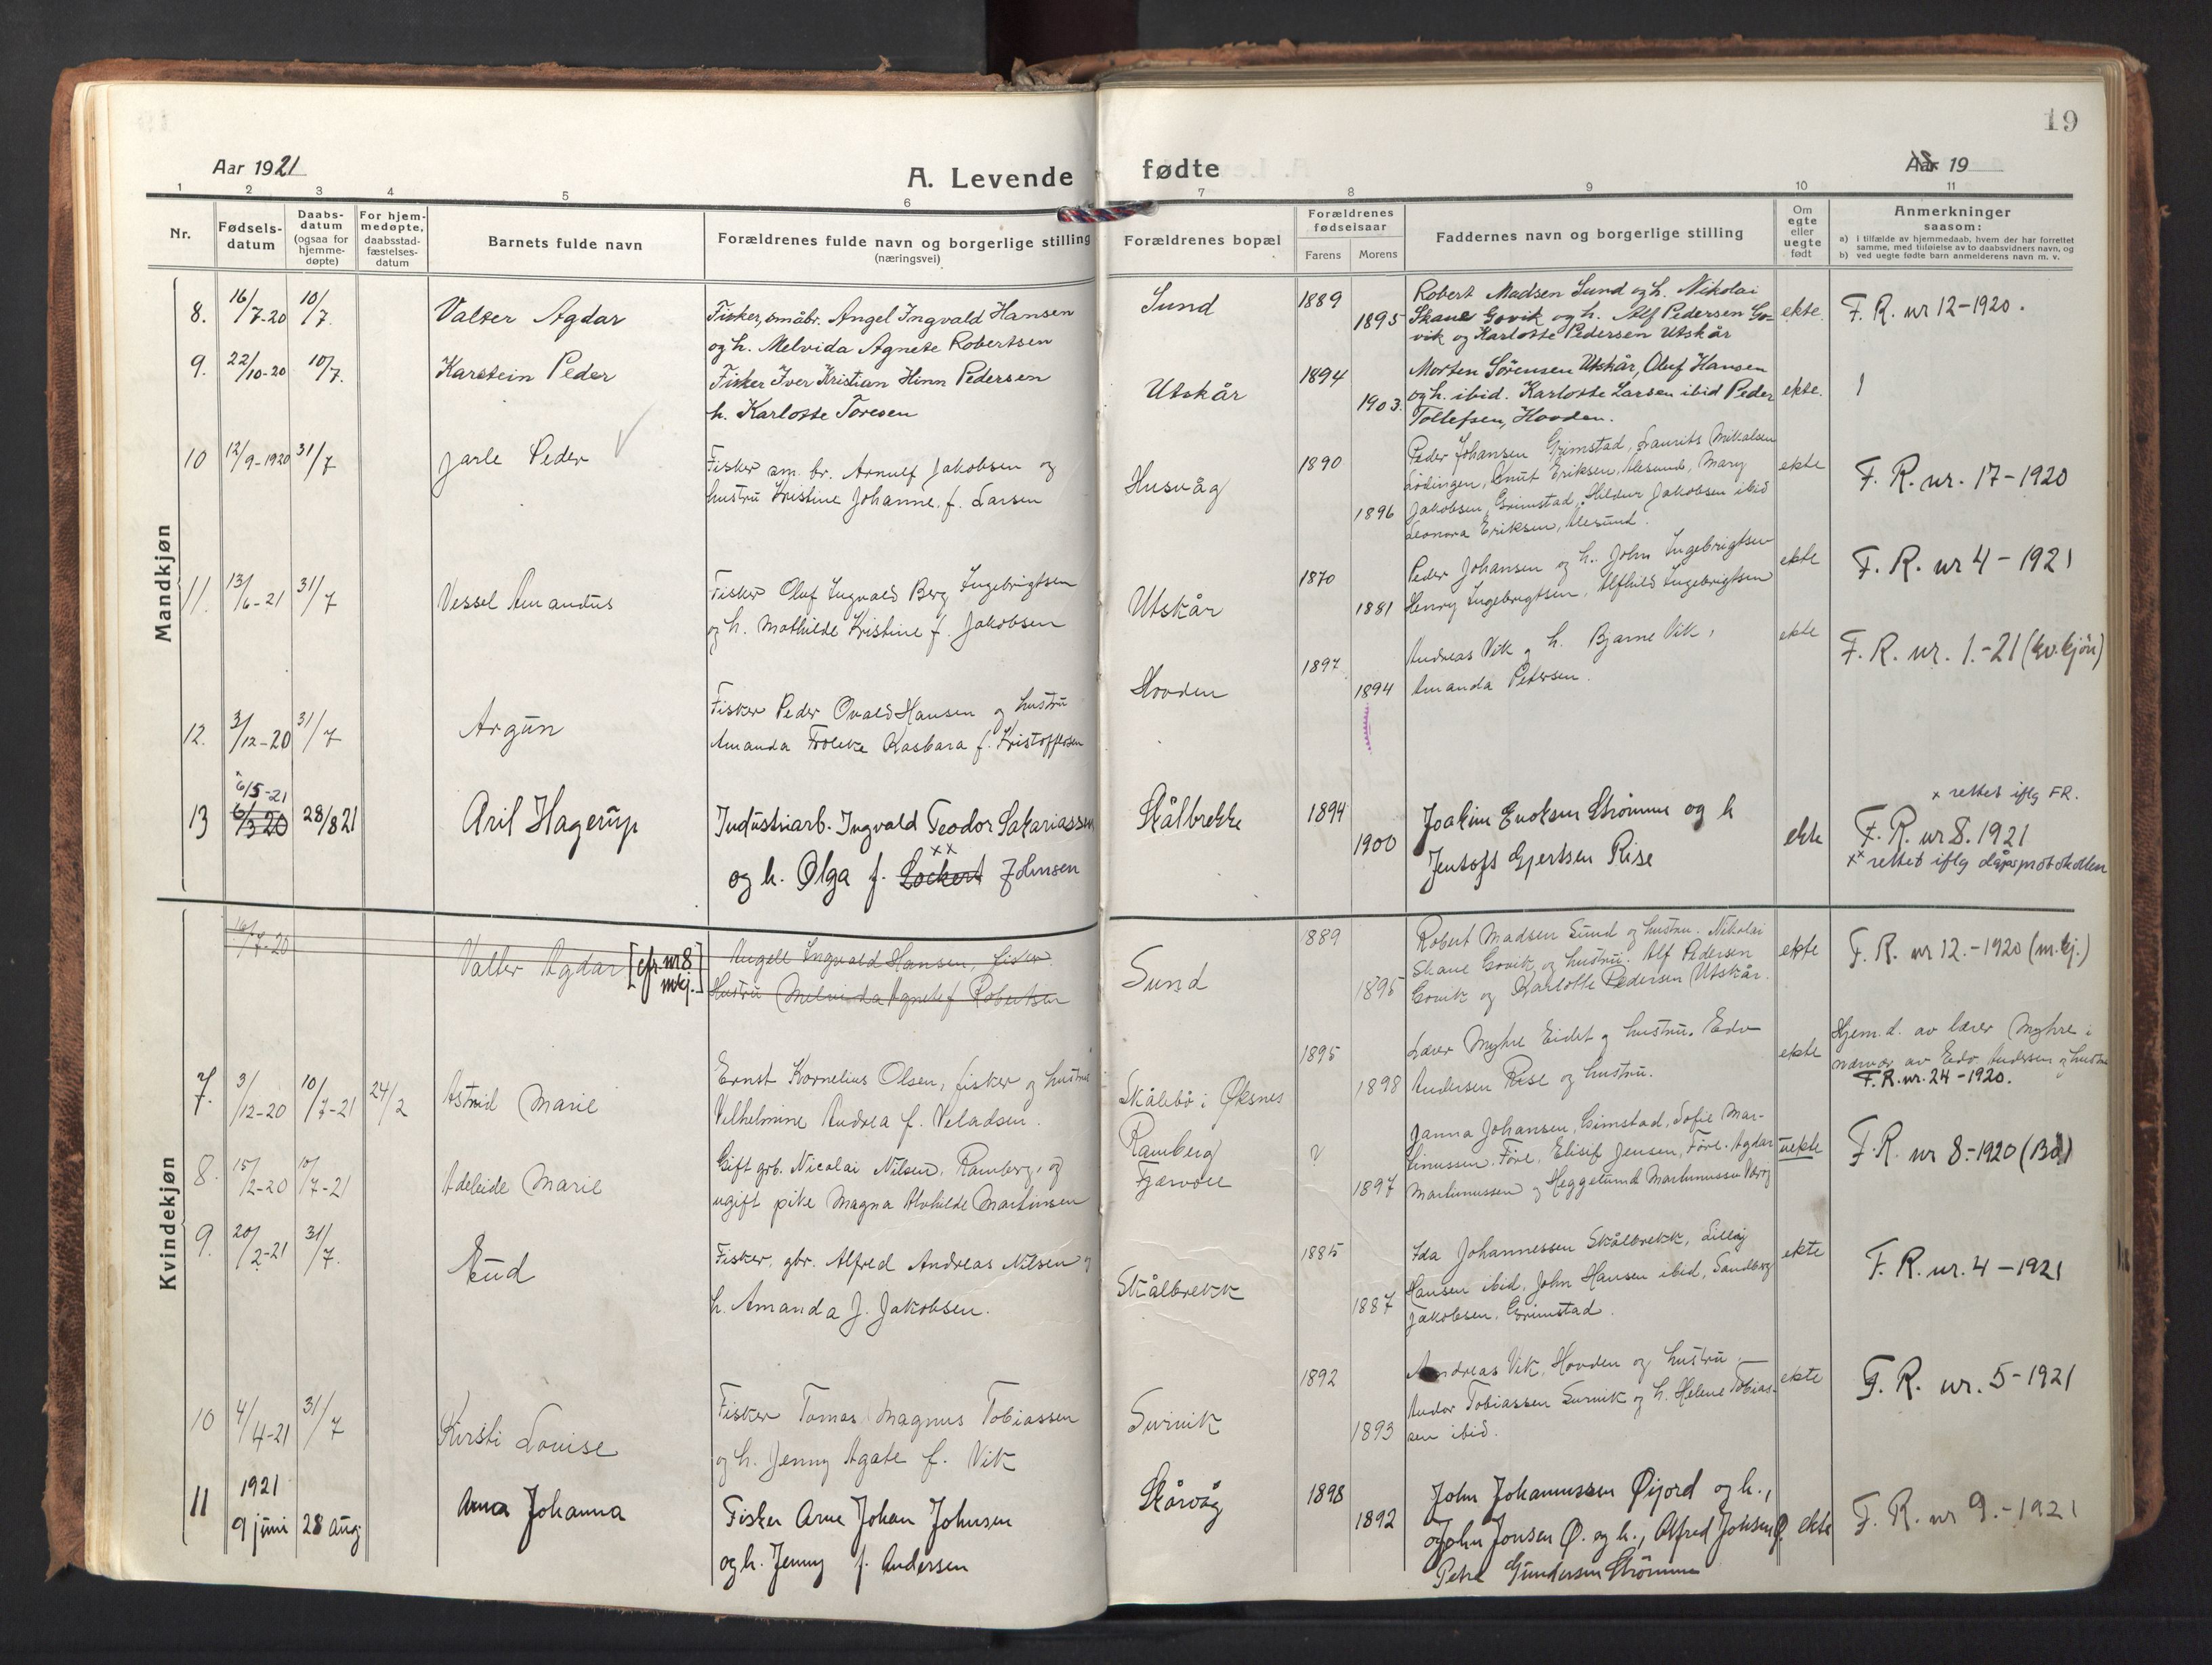 19
Aar 1921
A. Levende fødte
Aar 19
1 2 3 4 5 6 7 8 9 10 11
Nr.
Fødsels-
datum
Daabs-
datum
(ogsaa for
hjemme-
døpte)
For hjem-
medøpte,
daabsstad-
fæstelses-
datum
Barnets fulde navn
Forældrenes fulde navn og borgerlige stilling
(næringsvei)
Forældrenes bopæl
Forældrenes
fødselsaar
Farens Morens
Faddernes navn og borgerlige stilling
Om
egte
eller
uegte
født
Anmerkninger
saasom:
a) I tilfælde av hjemmedaab, hvem der har forrettet
samme, med tilføielse av to daabsvidners navn, og
b) ved uegte fødte barn anmelderens navn m. v.
Mandkjøn
8. 16/7-20 10/7. Valter Agdar
Fisker, småbr. Angel Ingvald Hansen
og h. Melvida Agnete Robertsen
Sund 1889 1895
Robert Madsen Sund og h. Nikolai
Skane Govik og h. Alf Pedersen Go-
vik og Karlotte Pedersen Utskår
ekte. F. R. nr 12-1920.
9. 22/10-20 10/7. Karstein Peder
Fisker Iver Kristian Hinn Pedersen
h. Karlotte Toresen
Utskår 1894 1903.
Morten Sørensen Utskår, Oluf Hansen
og h. ibid. Karlotte Larsen ibid Peder
Tollefsen, Hovden.
ekte. 1
10 12/9-1920 31/7 Jarle Peder
Fisker sm. br. Arnulf Jakobsen og
hustru Kristine Johanne f. Larsen
Husvåg 1890 1896
Peder Johansen Grimstad, Laurits Mikalsen
Lødingen, Knut Eriksen, Ålesund, Mary
Jakobsen, Grimstad, Hildur Jakobsen ibid
Leonora Eriksen, Ålesund.
ekte F. R. nr. 17-1920
11. 13/6-21 31/7 Vessel Amandus
Fisker Oluf Ingvald Berg Ingebrigtsen
og h. Mathilde Kristine f. Jakobsen
Utskår 1870 1881
Peder Johansen og h. John Ingebrigtsen
Henry Ingebrigtsen, Alfhild Ingebrigtsen
ekte F. R. nr 4-1921
12. 3/12-20 31/7 Argun
Fisker Peder Ovald Hansen og hustru
Amanda Froleke Kasbara f. Kristoffersen
Hovden 1897 1894
Andreas Vik og h. Bjarne Vik,
Amanda Petersen.
ekte F. R. nr. 1.-21 (kv. kjøn)
13 × 6/5-21 6/3 20 28/8 21 Aril Hagerup
Industriarb. Ingvald Teodor Sakariassen
og h. Olga f. Lockert ×× Johnsen
Skålbrekke 1894 1900
Joakim Enoksen Strømme og h
Jentoft Gjertsen Rise
ekte
× rettet iflg FR.
F. R. nr 8. 1921
×× rettet iflg dåpsprotokollen
Kvindekjøn
16/7-20 Valter Agdar [cfr. nr 8 mkj.]
Angell Ingvald Hansen, fisker
Hustru Melvinda Agnete f Robertsen
Sund 1889 1895
Robert Madsen Sund og hustru. Nikolai
Skane Govik og hustru. Alf Pedersen
Govik og Karlotte Pedersen Utskår.
ekte F. R. nr 12.-1920 (m.kj.)
7. 3/12-20 10/7-21 24/2 Astrid Marie
Ernst Kornelius Olsen, fisker og hustru
Vilhelmine Andrea f. Veladsen.
Skålebø i Øksnes 1895 1898
Lærer Myhre Eidet og hustru. Edv
Andersen Rise og hustru.
ekte
Hjem.d. av lærer Myhre i
nærvær av Edv. Andersen og hustru
F.R. nr. 24-1920.
8. 15/2-20 10/7-21 Adeleide Marie
Gift grb. Nicolai Nilsen, Ramberg, og
ugift pike Magna Alvhilde Martinsen
Ramberg
Fjærvoll
? 1897
Janna Johansen, Grimstad, Sofie Mar-
tinussen. Føre, Elisif Jensen, Føre. Agdar
Martinussen og Heggelund Martinussen
uekte F. R. nr 8.-1920 (Bø)
9. 20/2-21 31/7. Eud
Fisker, gbr. Alfred Andreas Nilsen og
h. Amanda J. Jakobsen.
Skålbrekk 1885 1887
Ida Johannessen Skålbrekk, Lilly
Hansen ibid, John Hansen ibid, Sandberg
Jakobsen, Grimstad.
ekte F. R. nr. 4-1921
10 4/4-21 31/7 Kirsti Lovise
Fisker Tomas Magnus Tobiassen
og h. Jenny Agate f. Vik
Survik 1892 1893
Andreas Vik, Hovden og hustru.
Andor Tobiassen Survik og h. Helene Tobias-
sen ibid.
ekte F. R. nr. 5-1921
11 1921 9 juni 28 aug Arna Johanna
Fisker Arne Johan Johnsen
og h. Jenny f. Andersen
Skårvåg 1898 1892
John Johannssen Øijord og h.,
og John Jonsen Ø. og h., Alfred Johnsen Ø.
Petra Gundersen Strømme
ekte F. R. nr 9.-1921